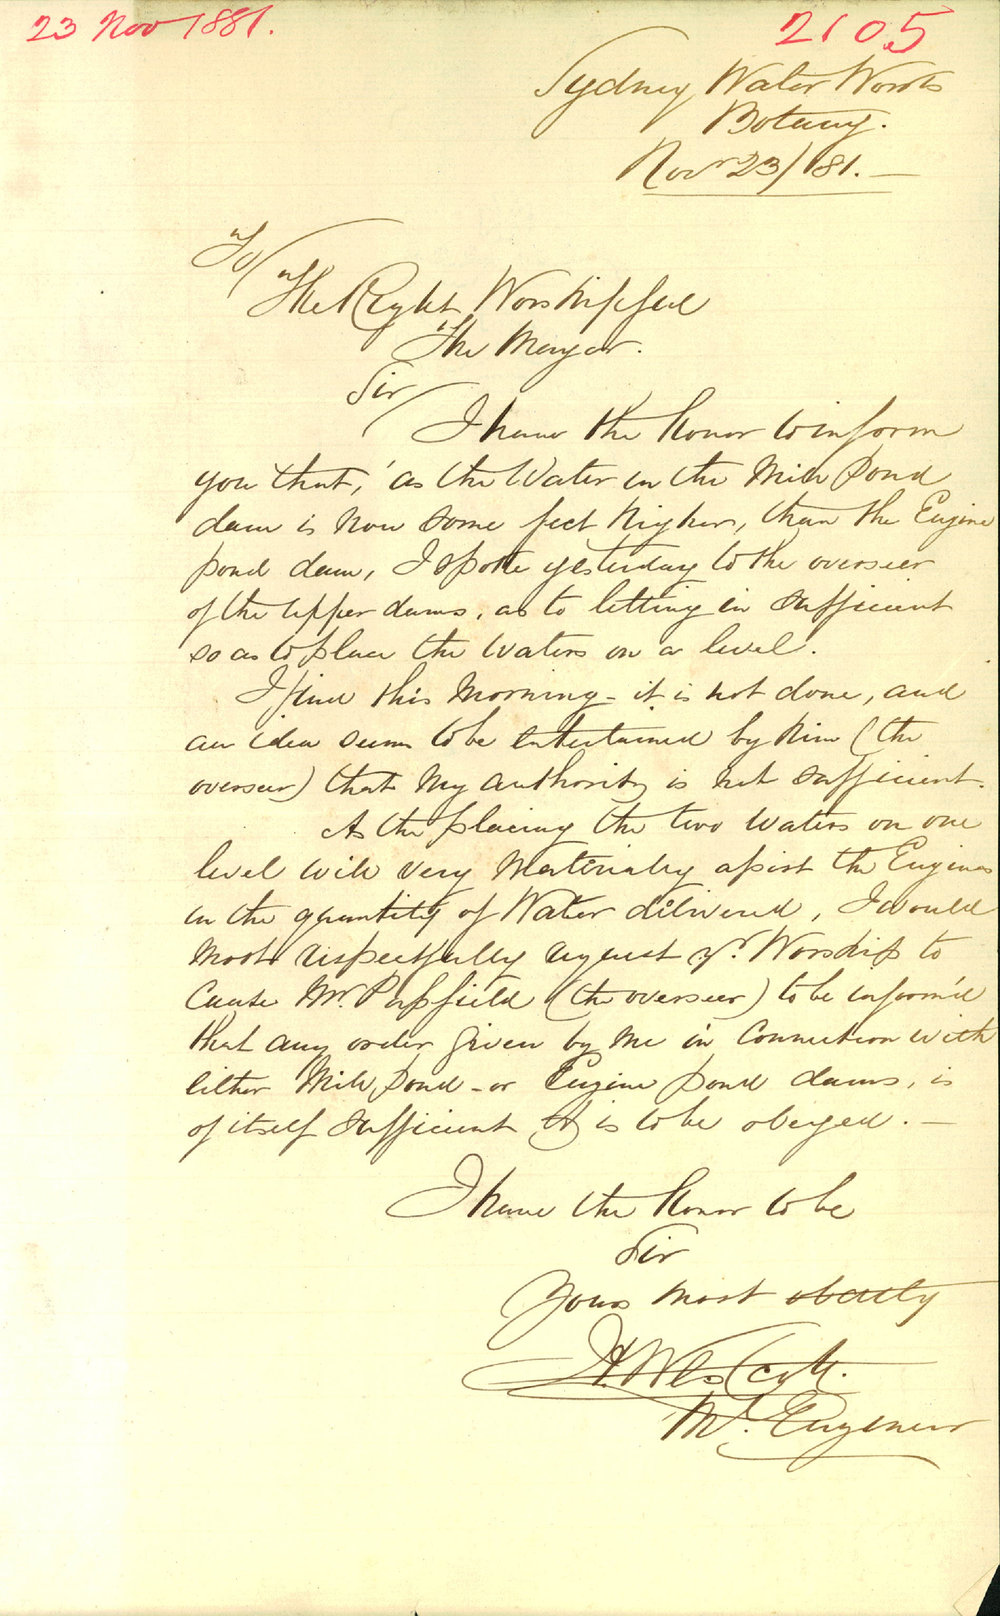 23 Nov 1881.
2105
Sydney Water Works
Botany.
Novr 23/81.—
To/
The Right Worshipful
The Mayor.
Sir/
I have the honor to inform
you that, as the Water in the Mill Pond
dam is now some feet higher, than the Engine
pond dam, I spoke yesterday to the overseer
of the upper dams, as to letting in sufficient
so as to place the Waters on a level.
I find this Morning - it is not done, and
an idea seems to be entertained by him (the
overseer) that my authority is not sufficient.
As the placing the two Waters on one
level will very Materially assist the Engines
in the quantity of Water delivered, I would
most respectfully request yr. Worship to
Cause Mr. Passfield (the overseer) to be inform'd
that any order given by me in Connection with
either Mill pond - or Engine pond dams, is
of itself sufficient & is to be obeyed. —
I have the honor to be
Sir
Yours most obedtly
H. Westcott.
Mg. Engineer